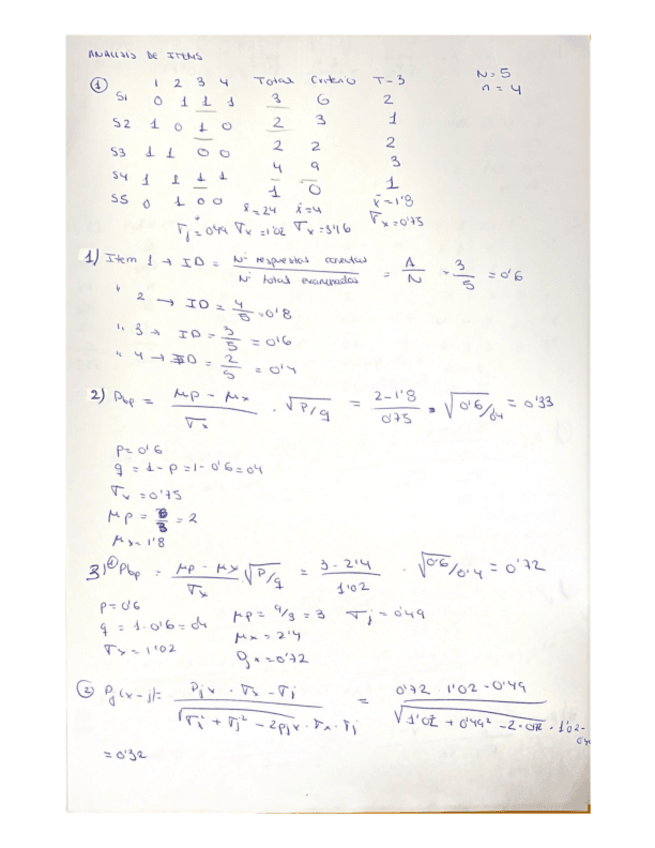 ANALISIS DE ITEMS
① 1 2 3 4 Total Criterio T-3 N=5
n=4
S1 0 1 1 1 3 6 2
S2 1 0 1 0 2 3 1
S3 1 1 0 0 2 2 2
S4 1 1 1 1 4 9 3
S5 0 1 0 0 1 0 1
x̄=2'4 x̄=4 x̄=1'8
σj=0'49 σx=1'02 σx=3'16 σx=0'75
1) Item 1 → ID = Nº respuestas correctas / Nº total examinados = A/N = 3/5 = 0'6
" 2 → ID = 4/5 = 0'8
" 3 → ID = 3/5 = 0'6
" 4 → ID = 2/5 = 0'4
2) ρbp = μp - μx / σx · √p/q = 2-1'8 / 0'75 · √0'6/0'4 = 0'33
p=0'6
q = 1-p = 1-0'6 = 0'4
σx = 0'75
μp = 6/3 = 2
μx = 1'8
3) ① ρbp = μp - μx / σx √p/q = 3-2'4 / 1'02 · √0'6/0'4 = 0'72
p=0'6
μp = 9/3 = 3 σj = 0'49
q = 1-0'6 = 0'4
μx = 2'4
σx = 1'02
ρjx = 0'72
② ρj(x-j) = ρjx · σx - σj / √σx² + σj² - 2ρjx · σx · σj = 0'72 · 1'02 - 0'49 / √1'02² + 0'49² - 2 · 0'72 · 1'02 ·
= 0'32